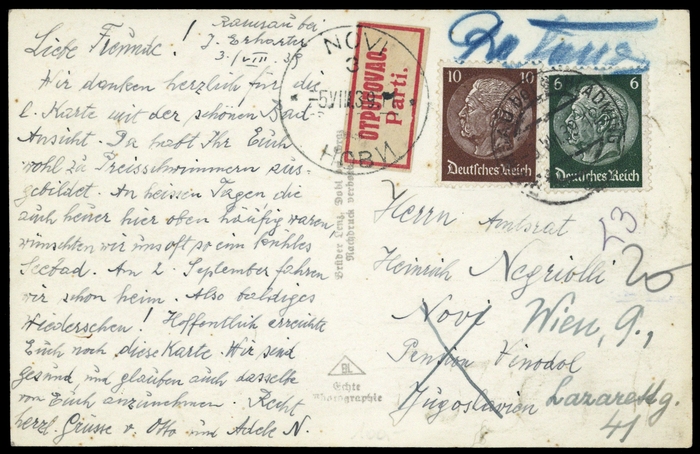 Ramsau bei
J. Erharter
3./VIII. 39
Liebe Freunde!
Wir danken herzlich für die
l. Karte mit der schönen Bad-
Ansicht. Da habt Ihr Euch
wohl zu Preisschwimmern aus-
gebildet. An heissen Tagen die
auch heuer hier oben häufig waren,
wünschten wir uns oft so ein kühles
Seebad. An 2. September fahren
wir schon heim. Also baldiges
Wiedersehen! Hoffentlich erreichte
Euch noch diese Karte. Wir sind
gesund und glauben auch dasselbe
von Euch anzunehmen. Recht
herzl. Grüsse v. Otto und Adele N.
NOVI
3
НОВИ
OTPUTOVAO
Parti.
Brüder Lenz, Nachdruck verboten
BL
Echte
Photographie
Retour
10 10
Deutsches Reich
6 6
Deutsches Reich
Herrn Amtsrat
Heinrich Negriolli
Novi
Pension Vinodol
Jugoslavien
53
20
Wien, 9.,
Lazarettg.
41